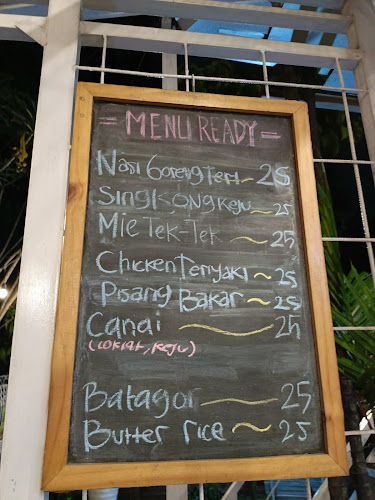 = MENU READY =
Nasi Goreng Teri ~ 25
Singkong Keju ~ 25
Mie Tek-Tek ~ 25
Chicken Teriyaki ~ 25
Pisang Bakar ~ 25
Canai ~ 25
(COKLAT, KEJU)
Batagor ~ 25
Butter rice ~ 25